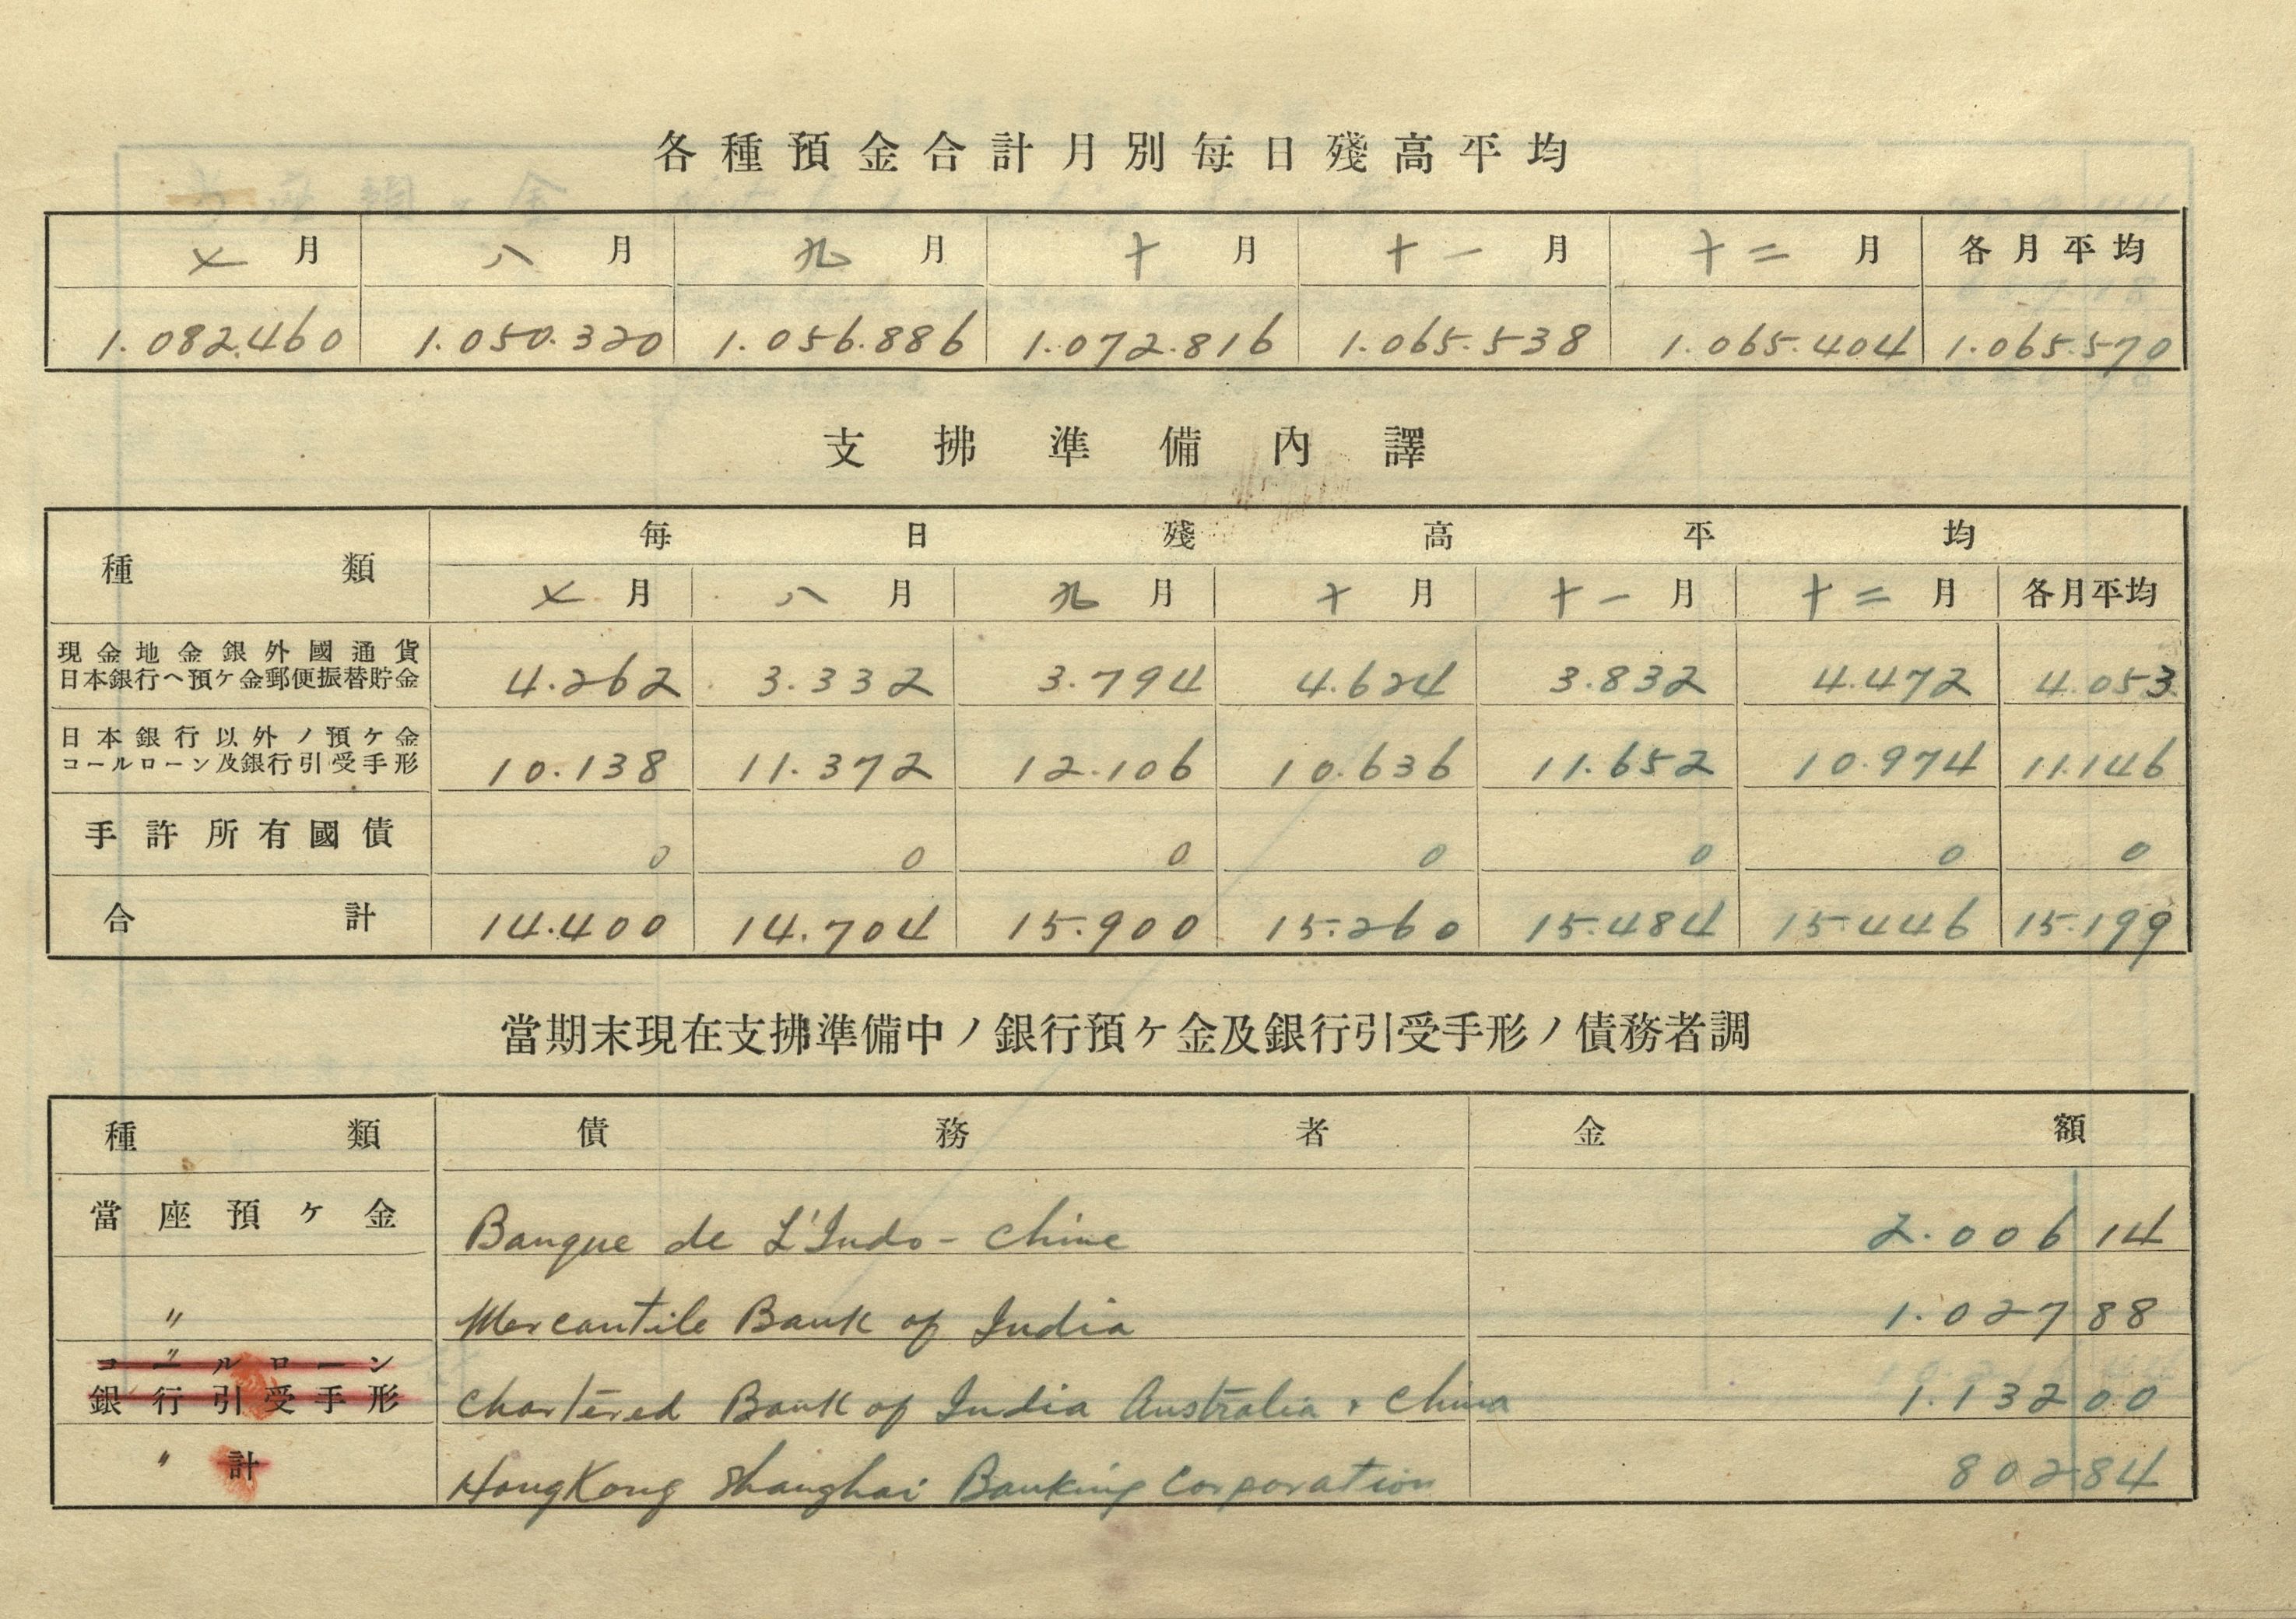 各種預金合計月別每日殘高平均
七月 八月 九月 十月 十一月 十二月 各月平均
1.082.460 1.050.320 1.056.886 1.072.816 1.065.538 1.065.404 1.065.570
支拂準備內譯
種類 每日殘高平均
七月 八月 九月 十月 十一月 十二月 各月平均
現金地金銀外國通貨
日本銀行ヘ預ケ金郵便振替貯金 4.262 3.332 3.794 4.624 3.832 4.472 4.053
日本銀行以外ノ預ケ金
コールローン及銀行引受手形 10.138 11.372 12.106 10.636 11.652 10.974 11.146
手許所有國債 0 0 0 0 0 0 0
合計 14.400 14.704 15.900 15.260 15.484 15.446 15.199
當期末現在支拂準備中ノ銀行預ケ金及銀行引受手形ノ債務者調
種類 債務者 金額
當座預ケ金 Banque de L'Indo-Chine 2.006 14
〃 Mercantile Bank of India 1.027 88
コールローン 〃
銀行引受手形 Chartered Bank of India Australia & China 1.132 00
〃 計 HongKong Shanghai Banking Corporation 802 84